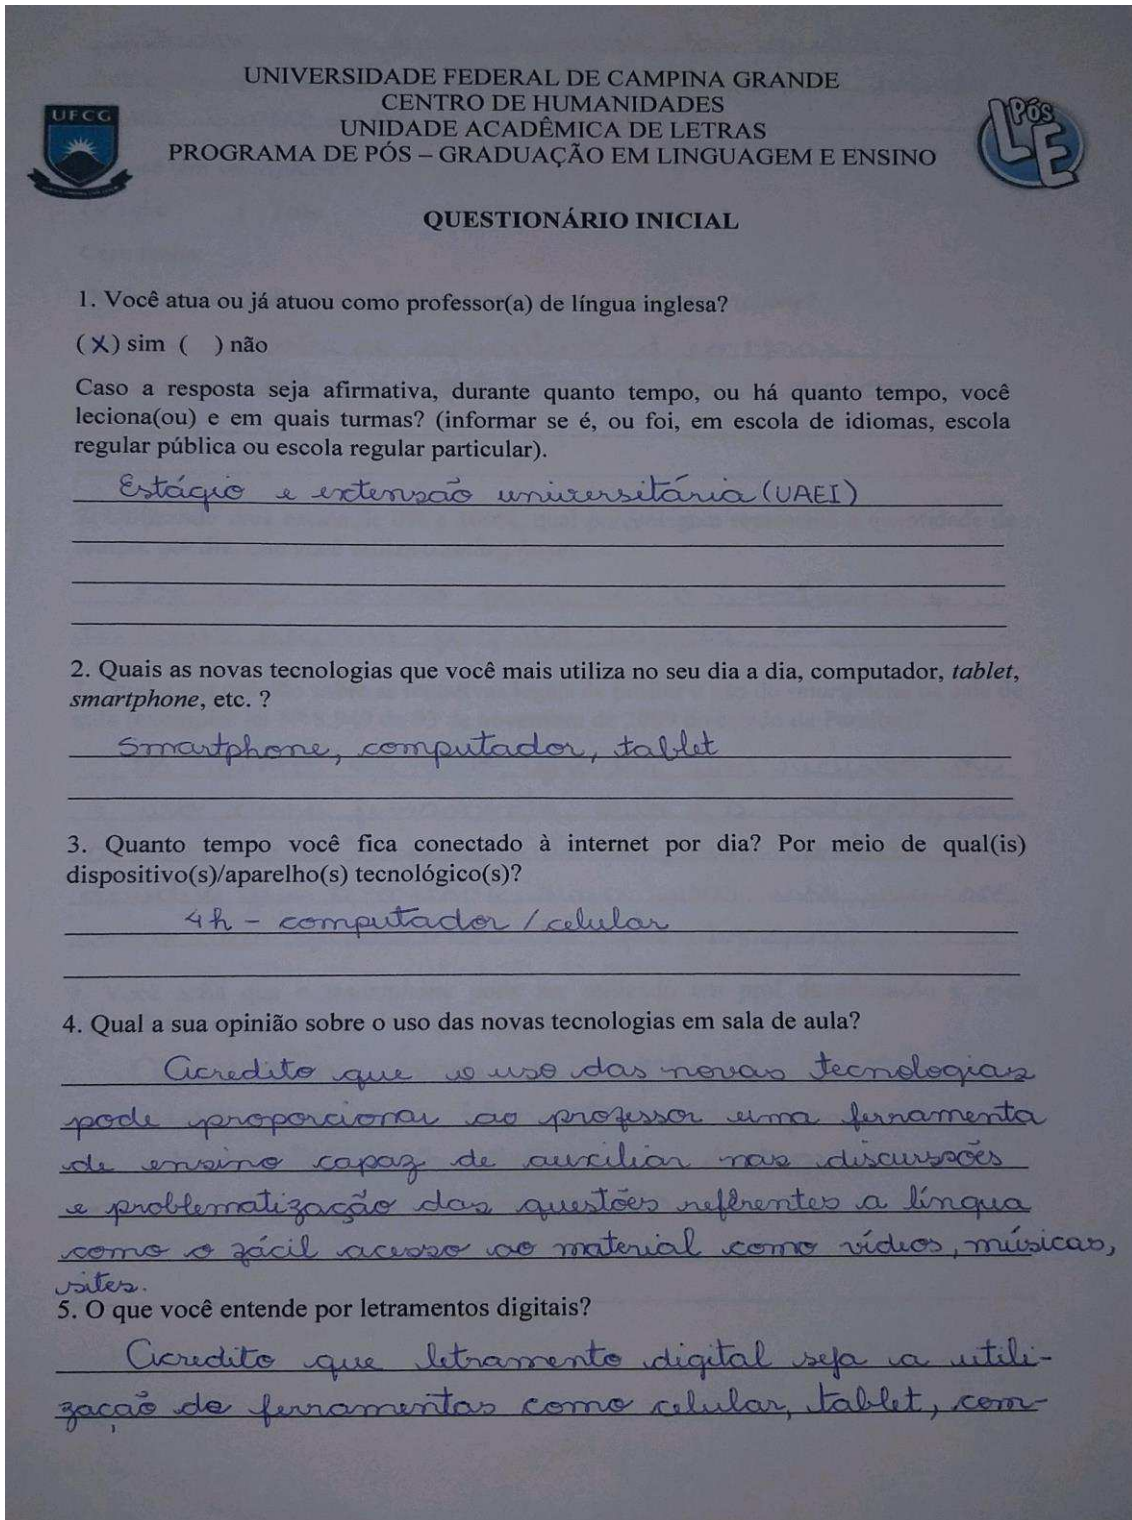 UNIVERSIDADE FEDERAL DE CAMPINA GRANDE
CENTRO DE HUMANIDADES
UNIDADE ACADÊMICA DE LETRAS
PROGRAMA DE PÓS – GRADUAÇÃO EM LINGUAGEM E ENSINO
UFCG
PÓS
LE
QUESTIONÁRIO INICIAL
1. Você atua ou já atuou como professor(a) de língua inglesa?
(X) sim ( ) não
Caso a resposta seja afirmativa, durante quanto tempo, ou há quanto tempo, você
leciona(ou) e em quais turmas? (informar se é, ou foi, em escola de idiomas, escola
regular pública ou escola regular particular).
Estágio e extensão universitária (UAEI)
2. Quais as novas tecnologias que você mais utiliza no seu dia a dia, computador, tablet,
smartphone, etc. ?
Smartphone, computador, tablet
3. Quanto tempo você fica conectado à internet por dia? Por meio de qual(is)
dispositivo(s)/aparelho(s) tecnológico(s)?
4h – computador / celular
4. Qual a sua opinião sobre o uso das novas tecnologias em sala de aula?
Acredito que o uso das novas tecnologias
pode proporcionar ao professor uma ferramenta
de ensino capaz de auxiliar nas discursões
e problematização das questões refêrentes a língua
como o fácil acesso ao material como vídeos, músicas,
sites.
5. O que você entende por letramentos digitais?
Acredito que letramento digital seja a utili-
zação de ferramentas como celular, tablet, com-